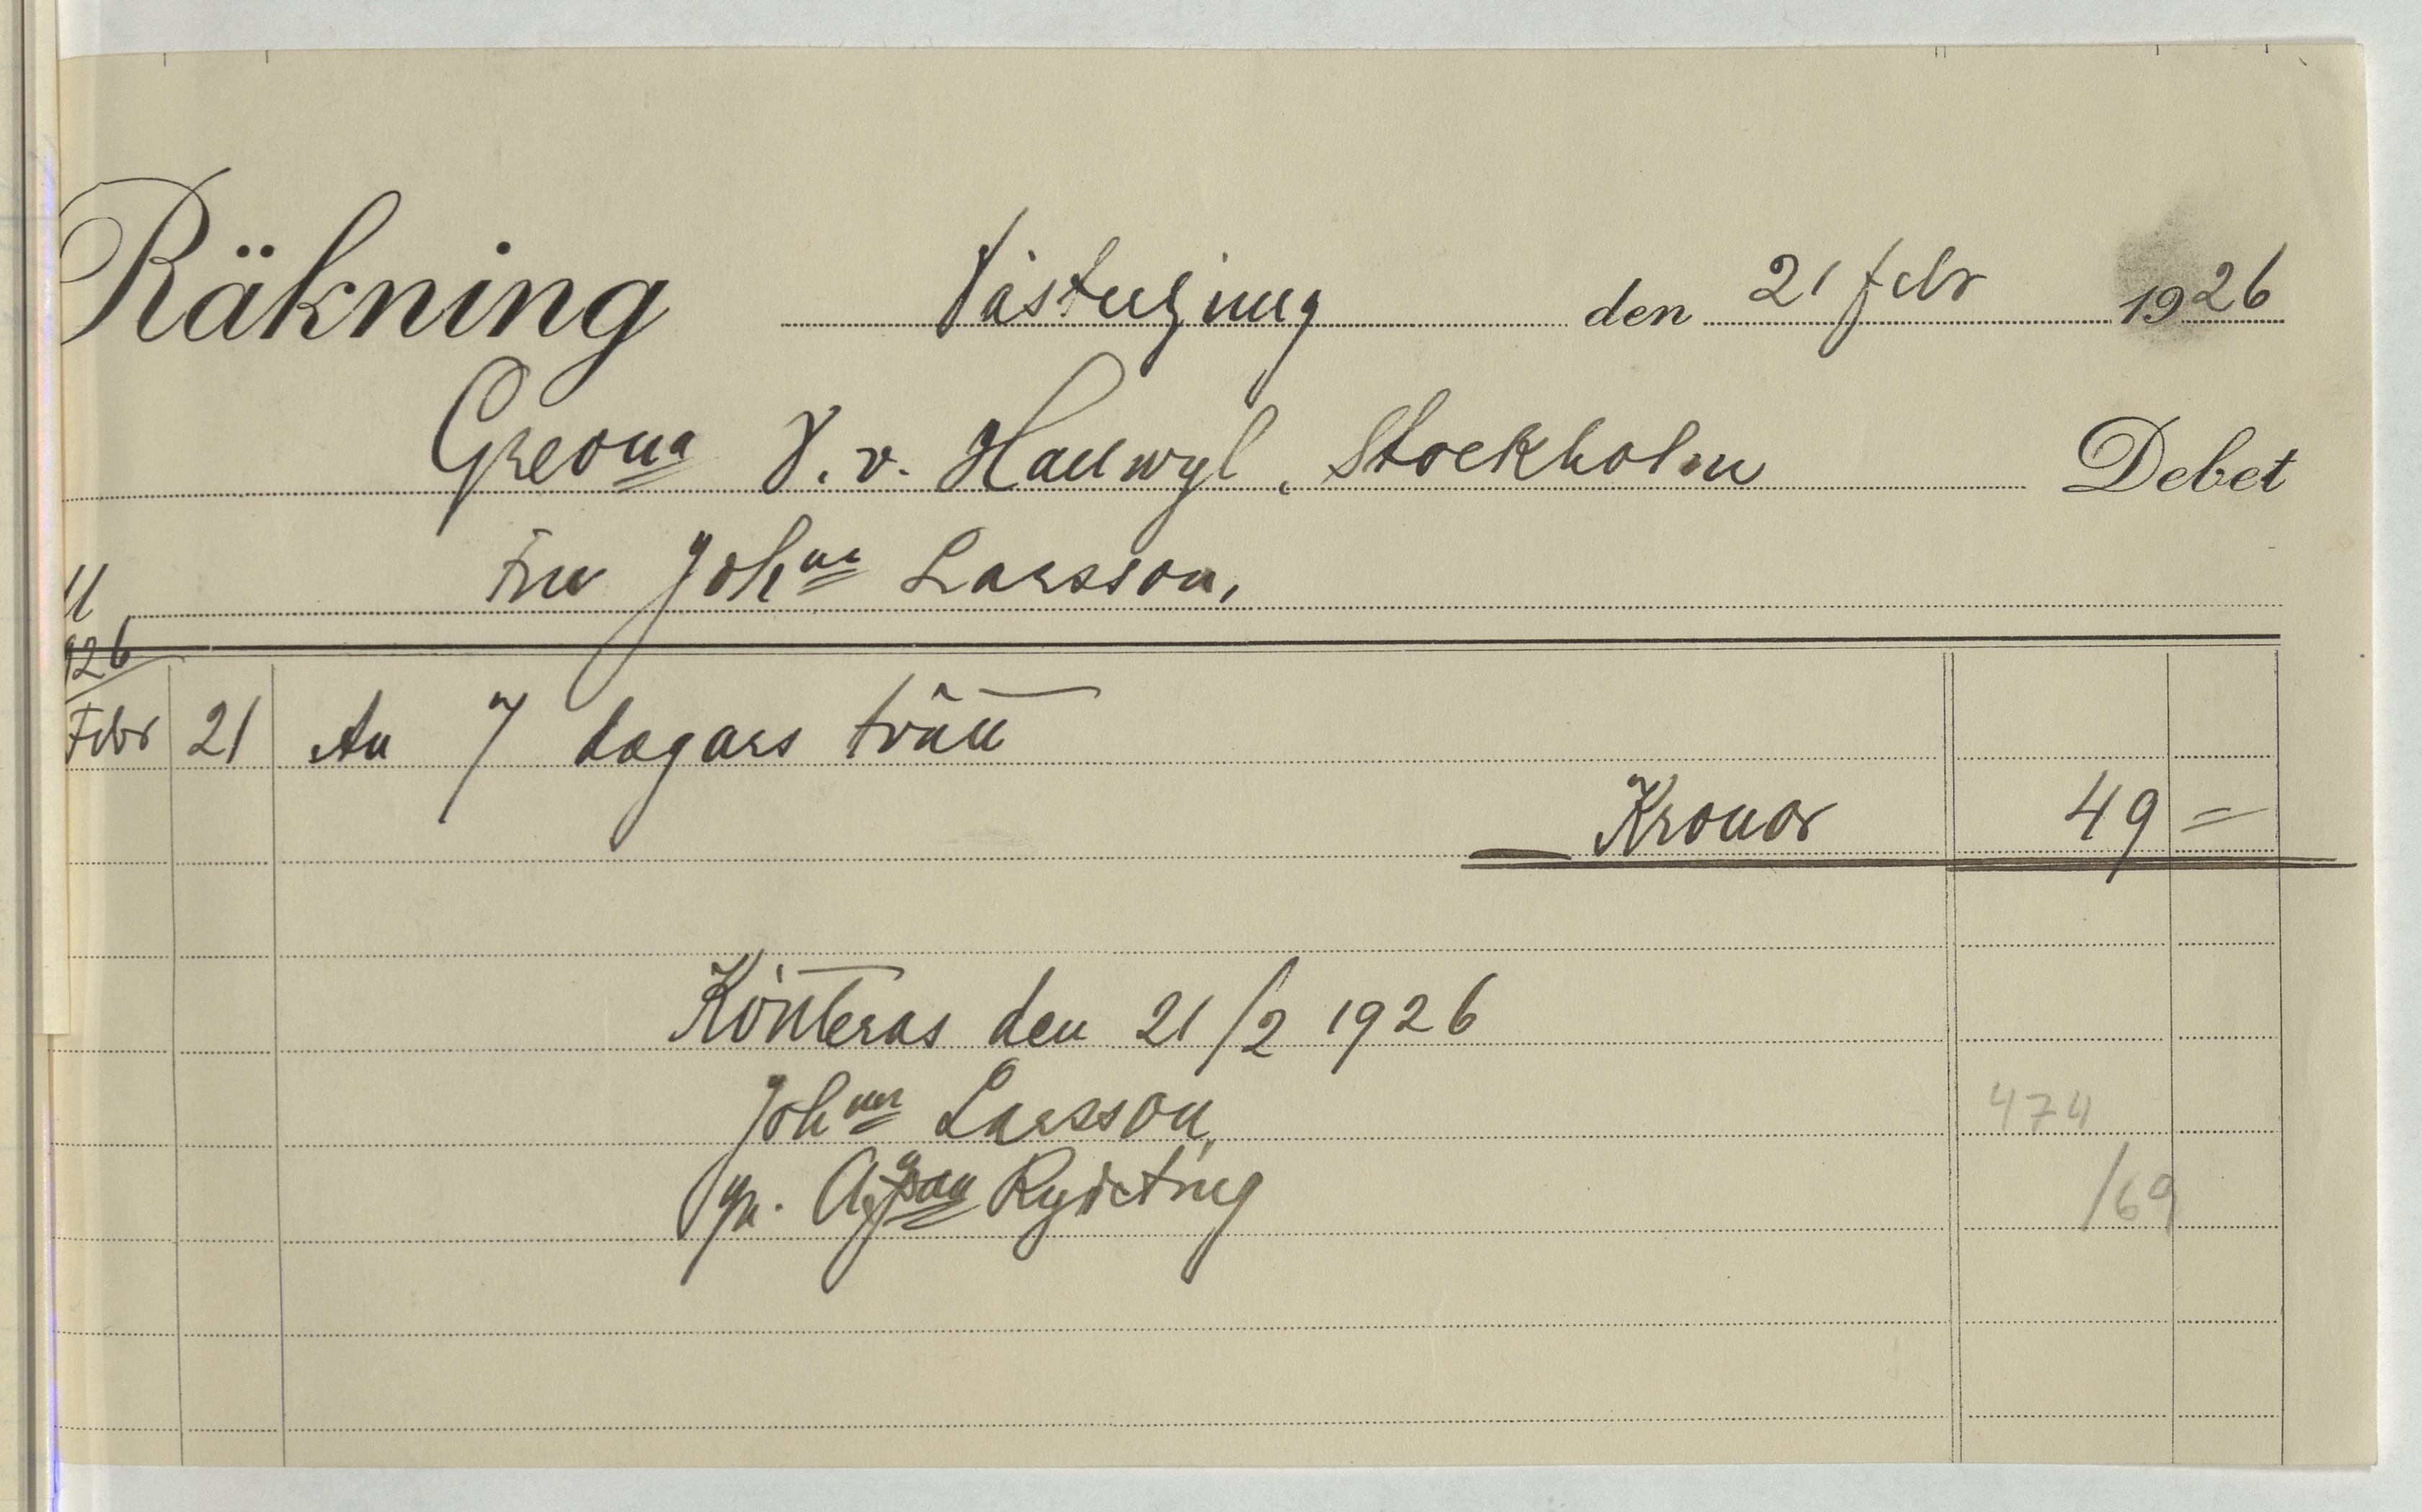 Räkning Västerljung den 21 febr 1926
Grevna V. v. Hallwyl, Stockholm Debet
till Fru Johna Larsson,
1926
Febr 21 An 7 dagars tvätt
Kronor 49 =
Kvitteras den 21/2 1926
Johna Larsson,
gn. Rydeting
474
/69